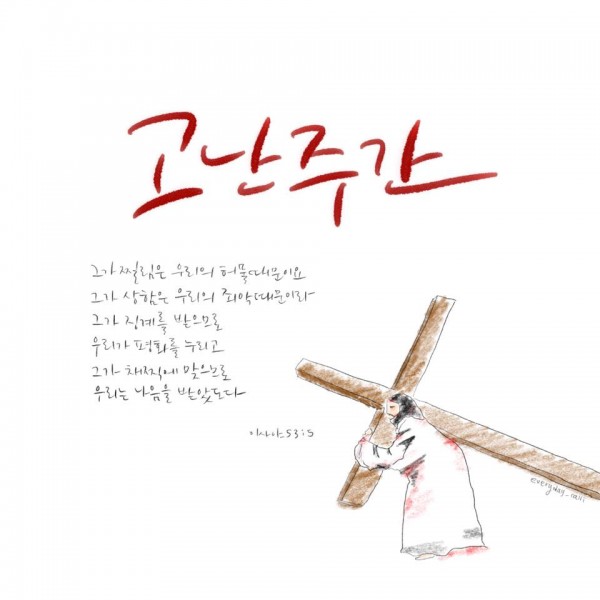 고난주간
그가 찔림은 우리의 허물때문이요
그가 상함은 우리의 죄악때문이라
그가 징계를 받으므로
우리가 평화를 누리고
그가 채찍에 맞으므로
우리는 나음을 받았도다
이사야53:5
everyday_calli